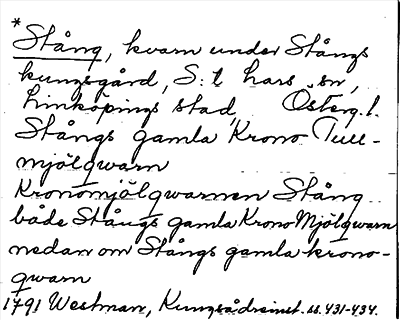 *
Stång, kvarn under Stångs
kungsgård, S:t Lars sn,
Linköpings stad, Österg. l.
Stångs gamla Krono Tull-
mjölqwarn
Kronomjölqwarnen Stång
både Stångs gamla Krono Mjölqwarn
nedan om Stångs gamla krono-
qwarn
1791 Westman, Kungsådreinst. ss. 431-434.